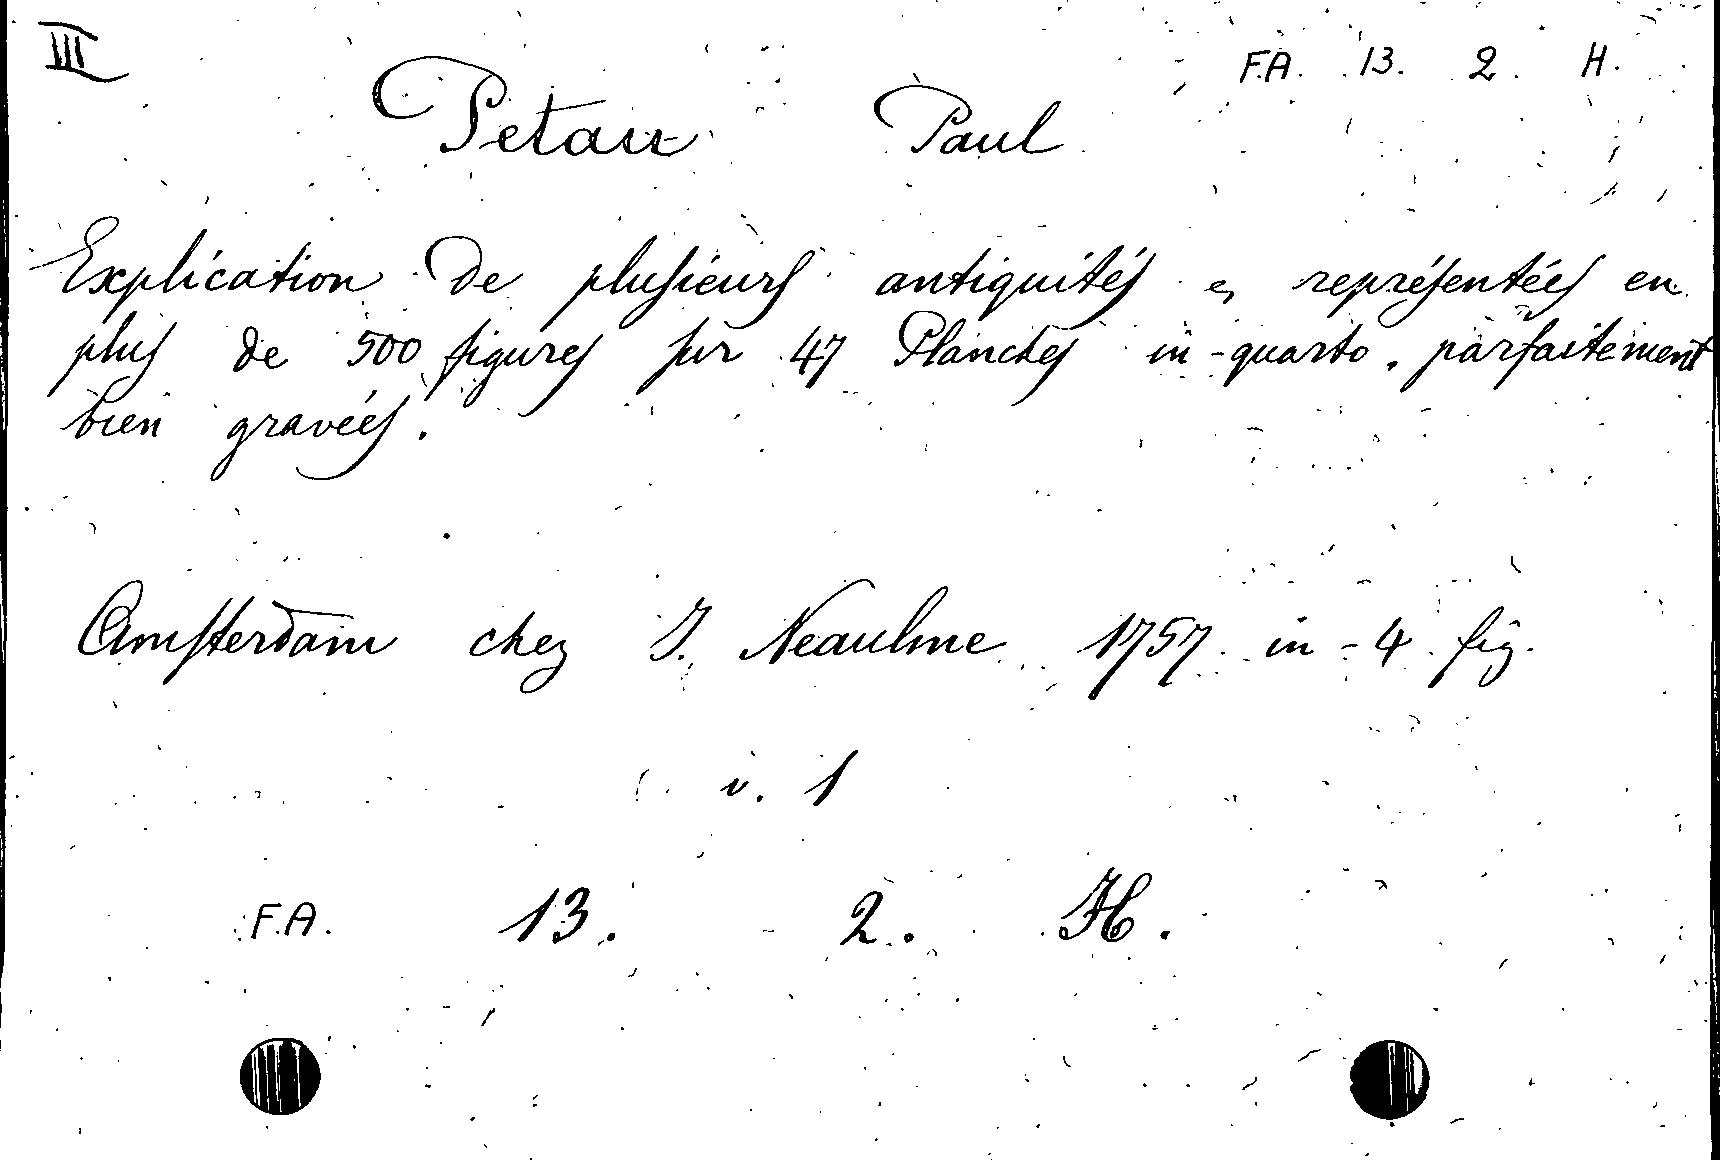 III
F.A. 13. 2. H.
Petau Paul
Explication de plusieurs antiquités, représentées en
plus de 500 figures sur 47 Planches in-quarto, parfaitement
bien gravées.
Amsterdam chez J. Neaulme 1757 in-4 fig.
v. 1
F.A. 13. 2. H.